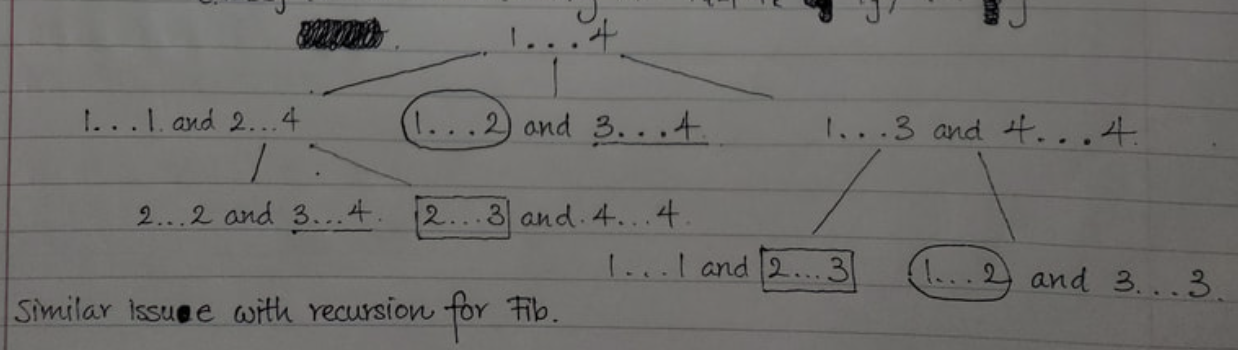 1...4
1...1 and 2...4 1...2 and 3...4 1...3 and 4...4
2...2 and 3...4 2...3 and 4...4
1...1 and 2...3 1...2 and 3...3.
Similar issue with recursion for Fib.